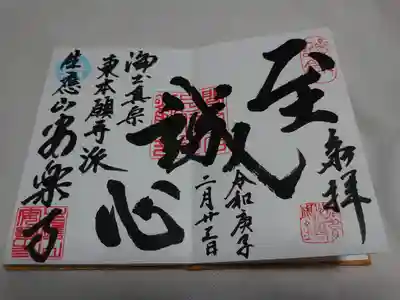 奉拝
至誠心
令和庚子
二月廿三日
浄土真宗
東本願寺派
安楽寺